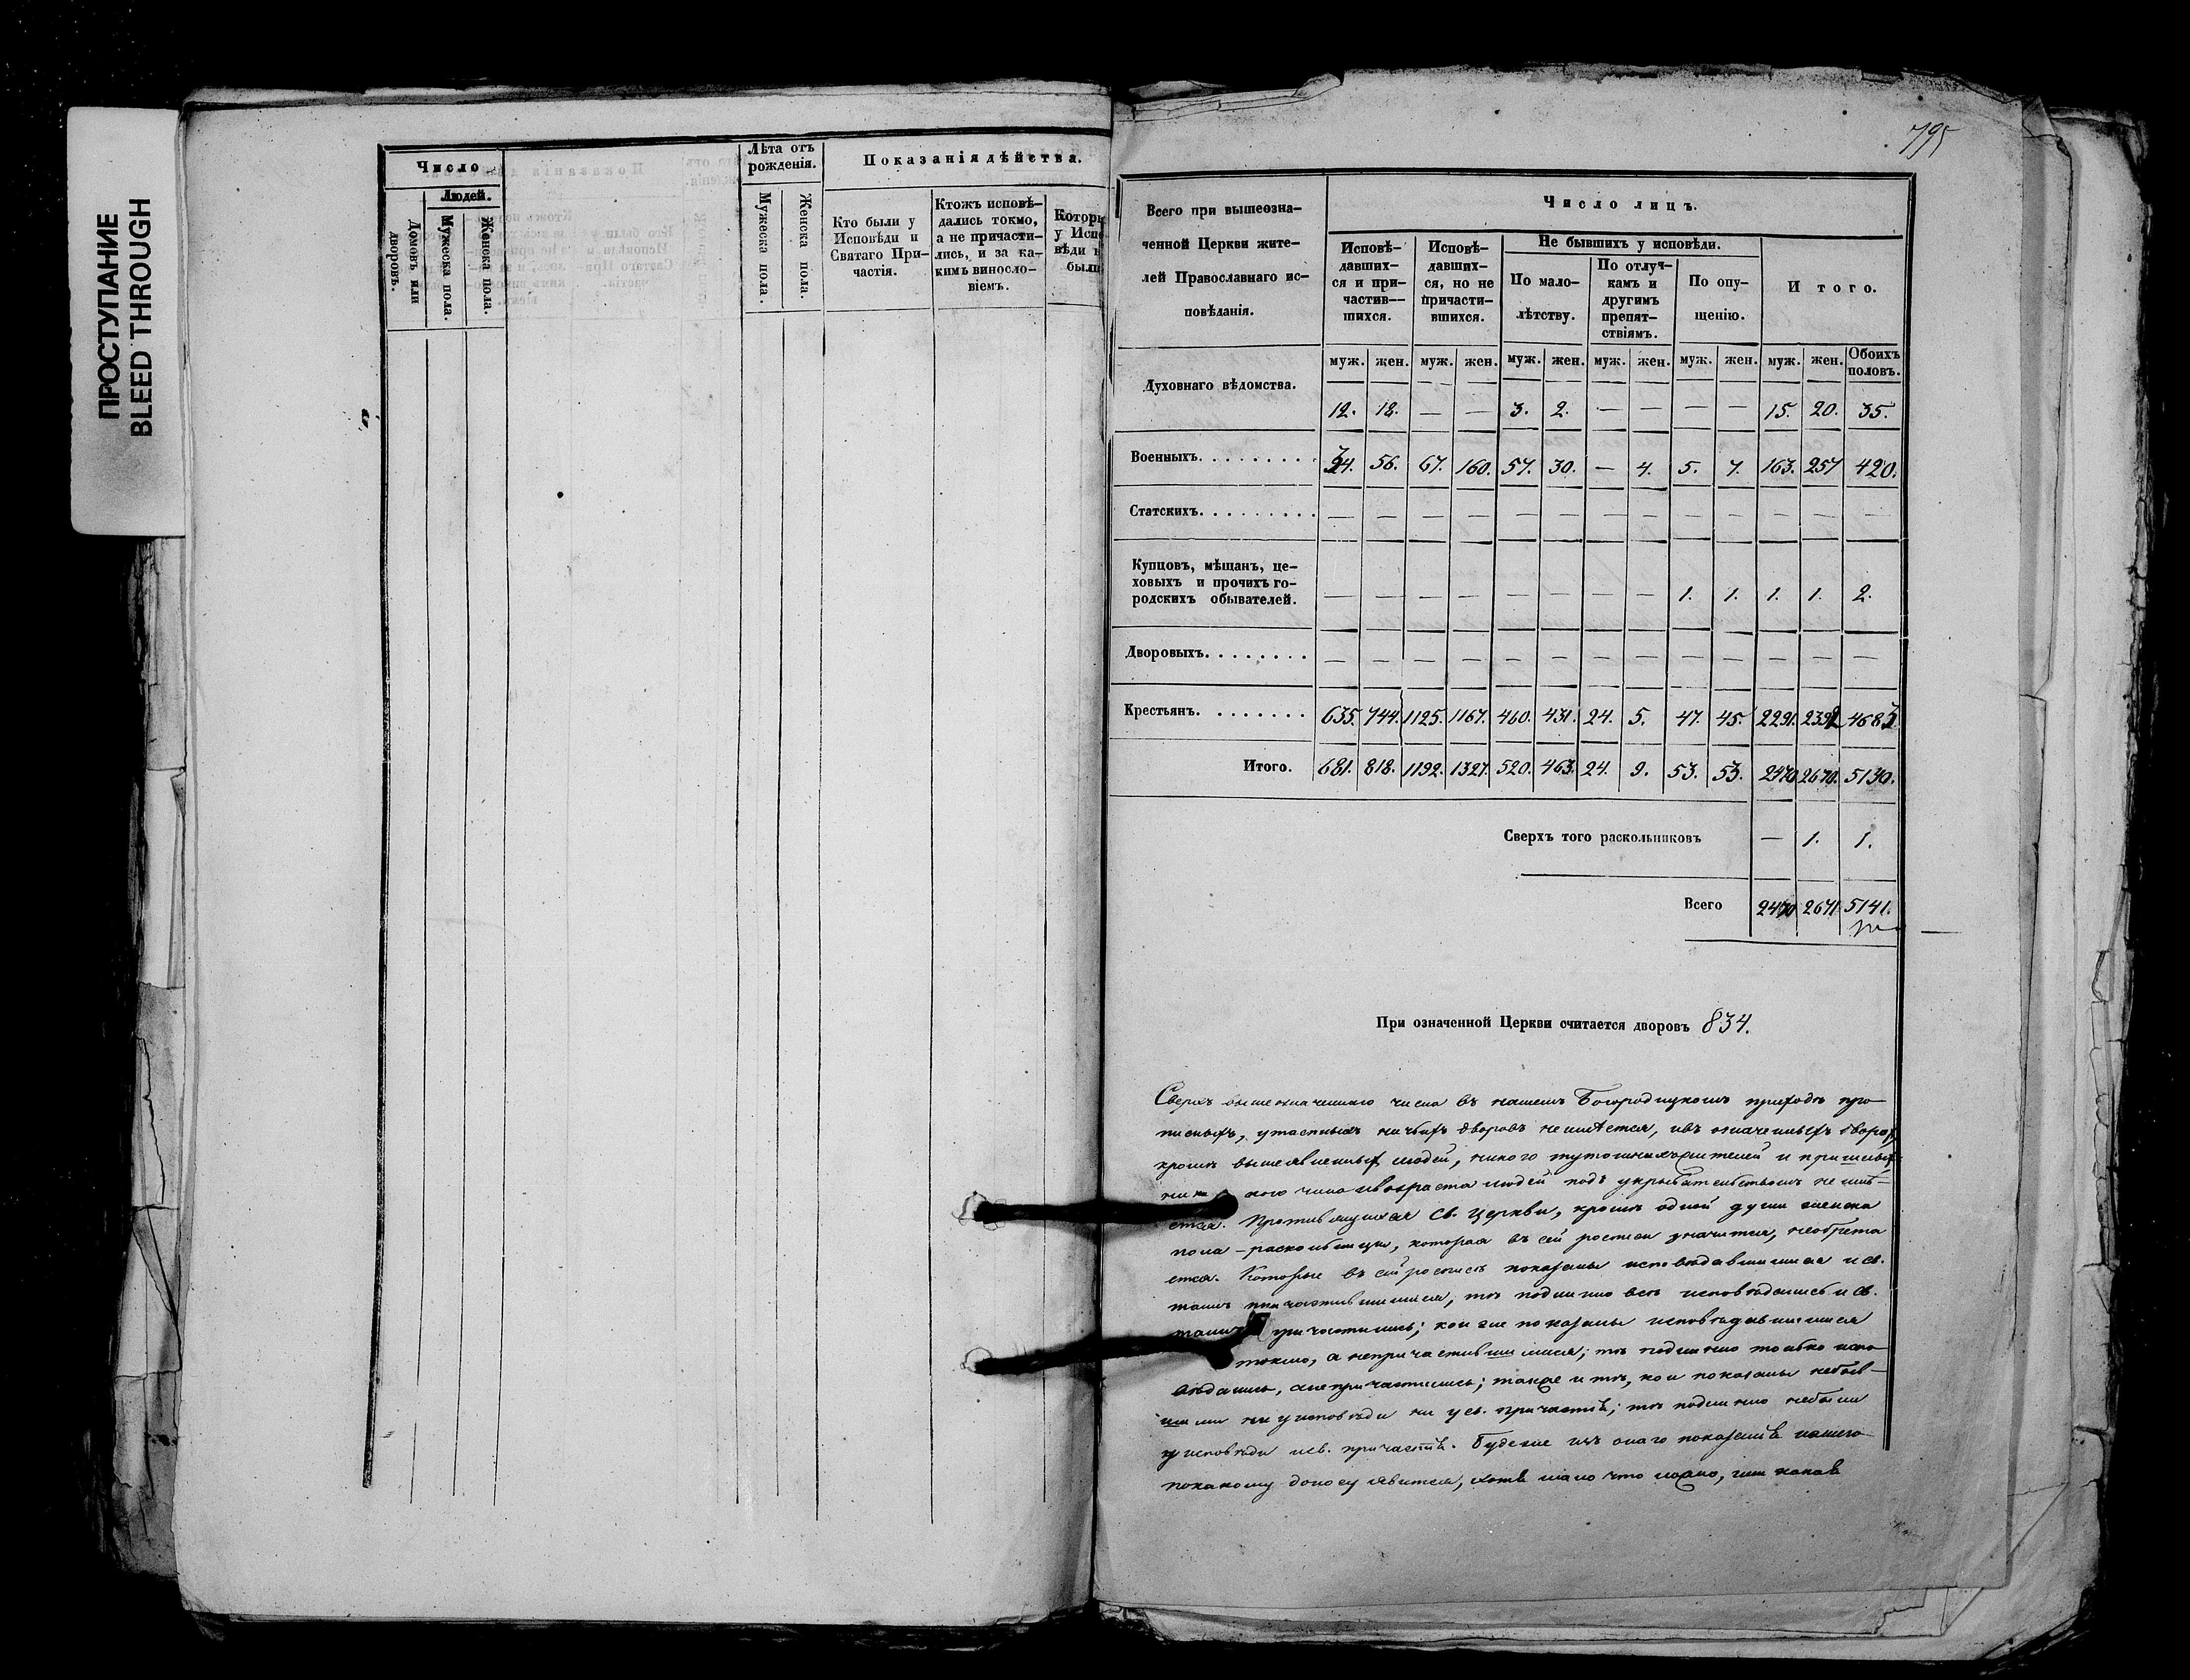 ПРОСТУПАНИЕ
BLEED THROUGH
Число
Людей.
Домовъ или дворовъ.
Мужеска пола.
Женска пола.
Лѣта отъ рожденія.
Мужеска пола.
Женска пола.
Показанія дѣйства.
Кто были у
Исповѣди и
Святаго При-
частія.
Ктожъ исповѣ-
дались токмо,
а не причасти-
лись, и за ка-
кимъ виносло-
віемъ.
Которы
у Испо
вѣди н
были
795
Всего при вышеозна-
ченной Церкви жите-
лей Православнаго ис-
повѣданія.
Число лицъ.
Исповѣ-
давших-
ся и при-
частив-
шихся.
Исповѣ-
давших-
ся, но не
причасти-
вшихся.
Не бывшихъ у исповѣди.
По мало-
лѣтству.
По отлуч-
камъ и
другимъ
препят-
ствіямъ.
По опу-
щенію.
Итого.
муж. жен. муж. жен. муж. жен. муж. жен. муж. жен. муж. жен. Обоихъ половъ.
Духовнаго вѣдомства. 12. 18. — — 3. 2. — — — — 15. 20. 35.
Военныхъ. . . . . . . . . 34. 56. 67. 160. 57. 30. — 4. 5. 7. 163. 257 420.
Статскихъ. . . . . . . . . — — — — — — — — — — — — —
Купцовъ, мѣщанъ, це-
ховыхъ и прочихъ го-
родскихъ обывателей. — — — — — — — — 1. 1. 1. 1. 2.
Дворовыхъ. . . . . . . . — — — — — — — — — — — — —
Крестьянъ. . . . . . . . 635. 744. 1125. 1167. 460. 431. 24. 5. 47. 45. 2291. 2392 4683.
Итого. 681. 818. 1192. 1327. 520. 463. 24. 9. 53. 53. 2470 2670. 5140.
Сверхъ того раскольниковъ — 1. 1.
Всего 2470 2671 5141.
При означенной Церкви считается дворовъ 834.
Сверхъ вышеозначеннаго числа въ нашемъ Богородицкомъ приходѣ про-
писныхъ, утаенныхъ ничьихъ дворовъ неимѣется, ивъ означенныхъ дворахъ
кромѣ вышеявленныхъ людей, никого тутошнихъ жителей и пришлыхъ
кого чина ивозраста людей подъ укрывательствомъ неимѣ-
ется. Противящихся Св. Церкви, кромѣ одной души женска
пола – раскольницы, которая въ сей росписи значится, необрѣта
ется. Которые въ сей росписи показаны исповѣдавшимися и св.
таинъ причастившимися, тѣ подлинно всѣ исповѣдались и св.
таинъ причастились; кои же показаны исповѣдавшимися
токмо, а непричастившимися; тѣ подлинно только испо-
вѣдались, а не причастились; также и тѣ, кои показаны небыв-
шими ни у исповѣди ни у св. причастія; тѣ подлинно небыли
у исповѣди и св. причастія. Будеже изъ онаго показанія нашего
по какому доносу явится, хотя мало что ложно, или какая